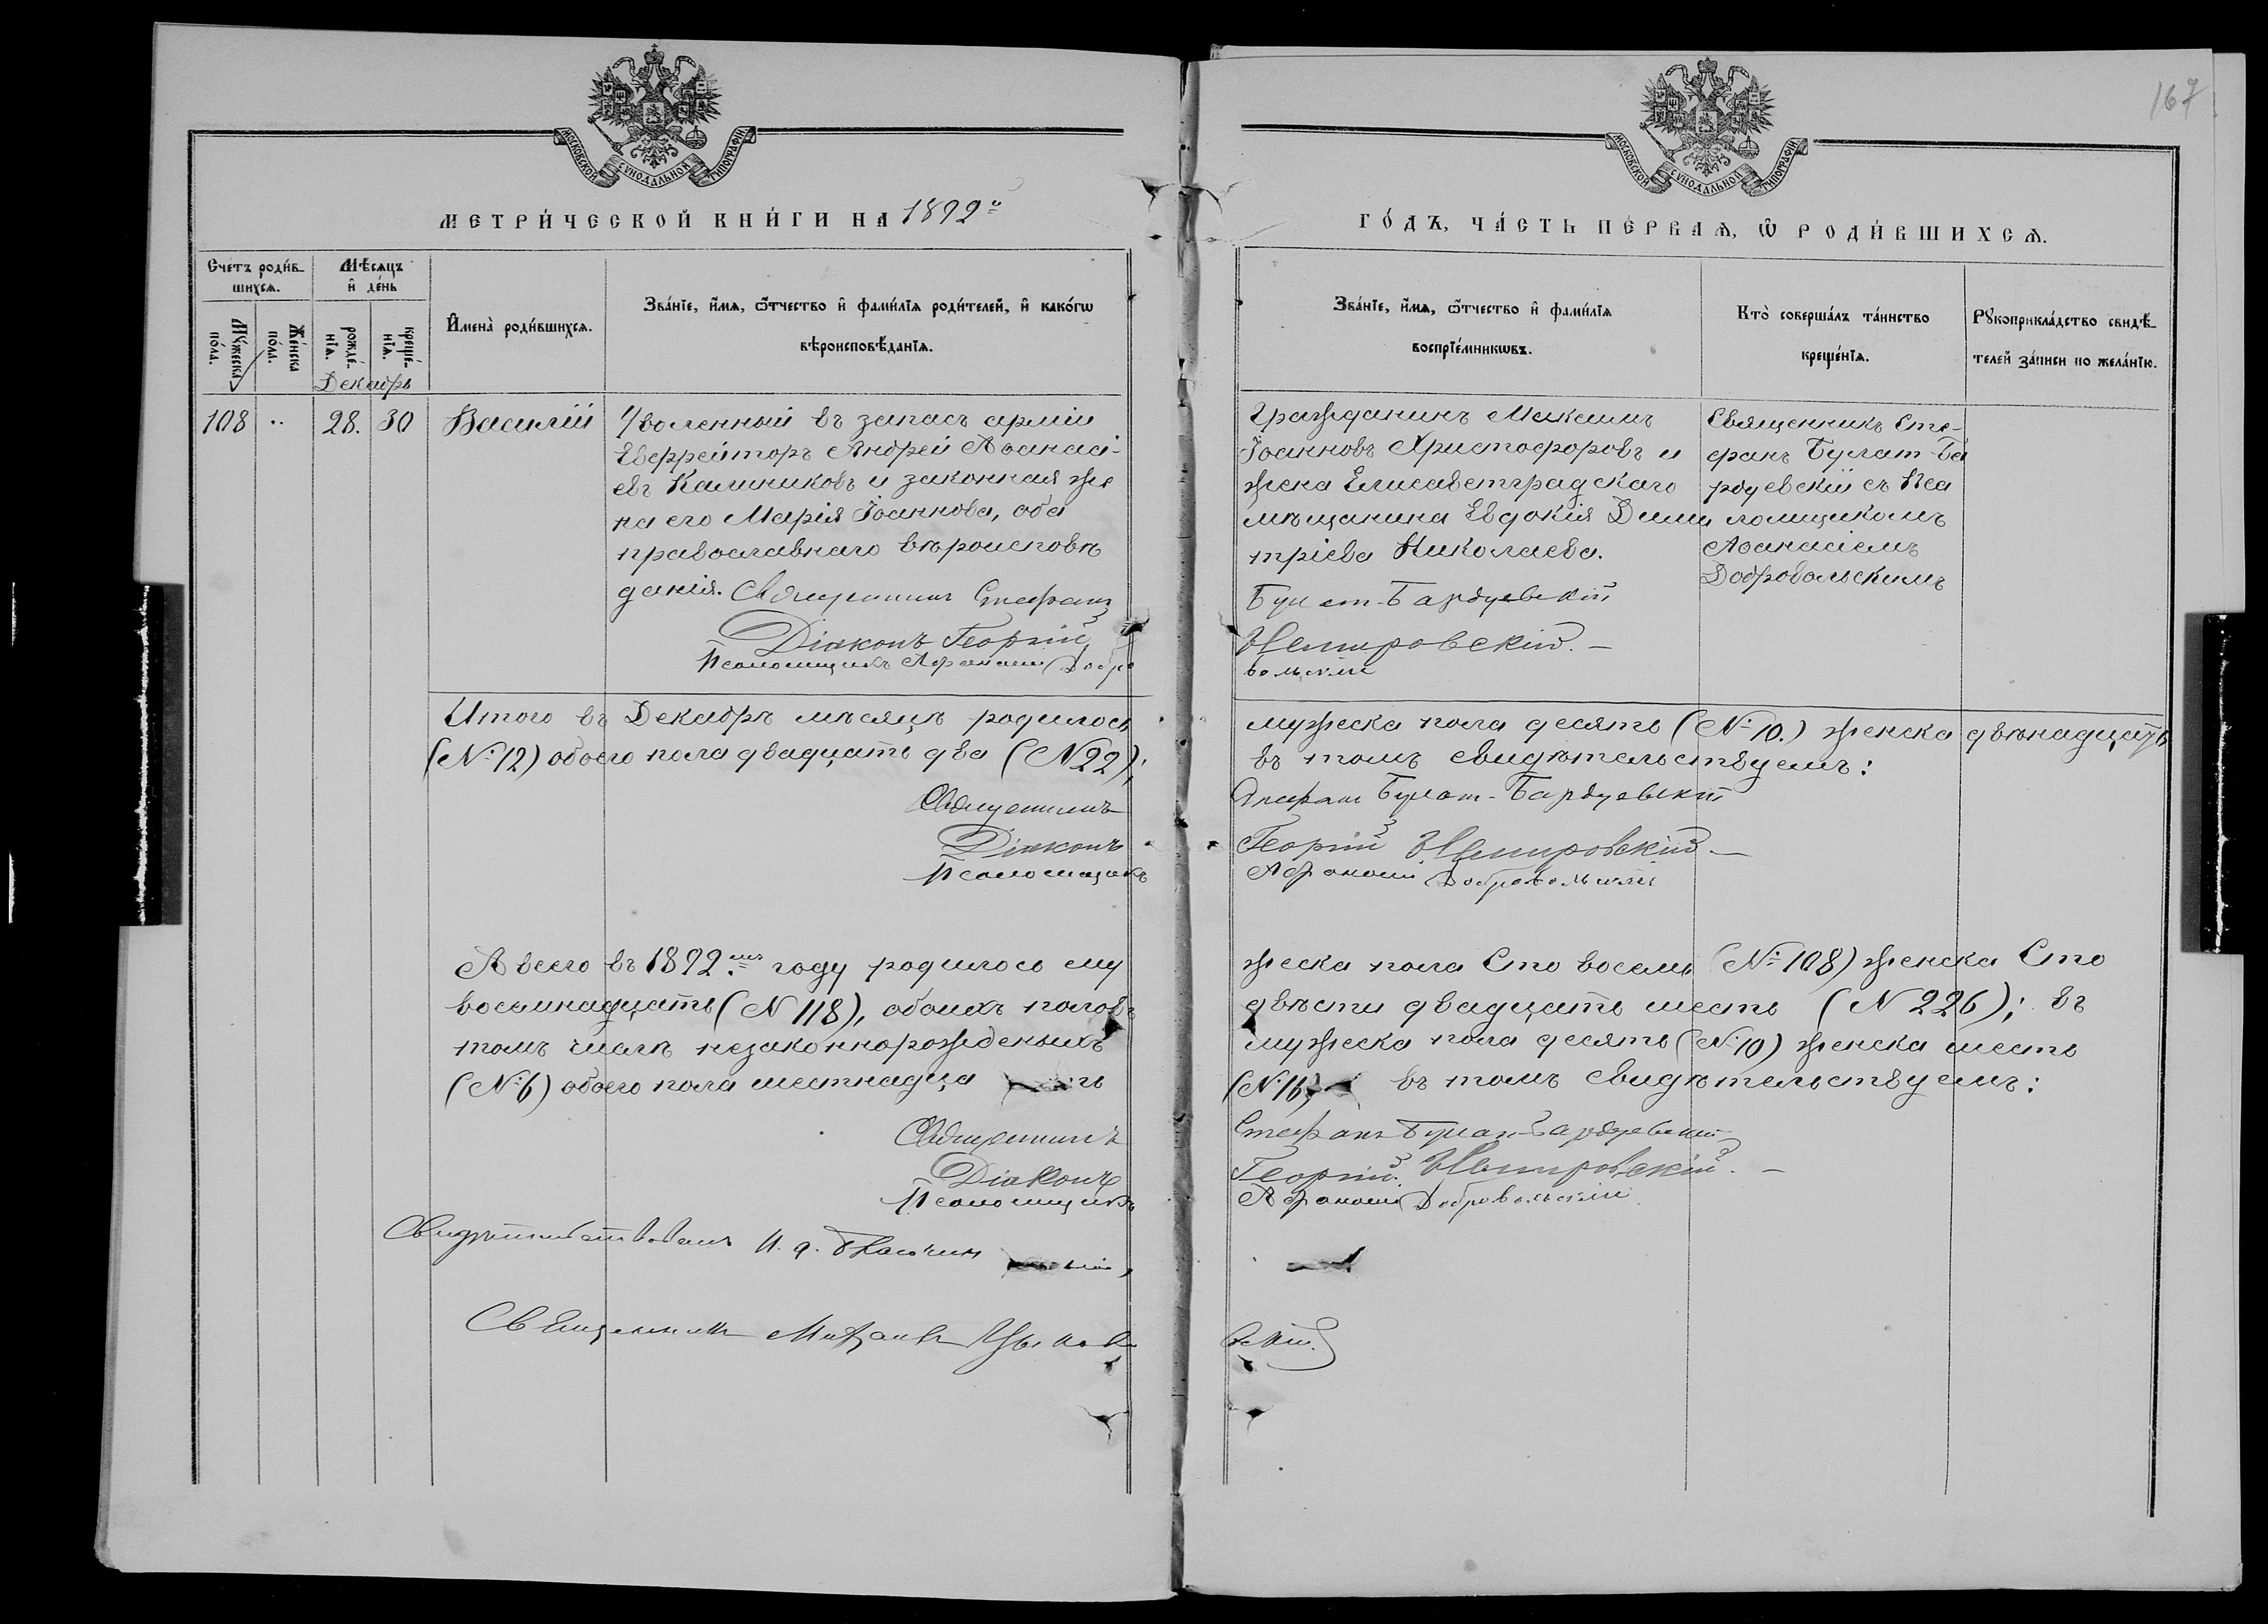 167
МОСКОВСКОЙ СУНОДАЛЬНОЙ ТИПОГРАФІИ
МОСКОВСКОЙ СУНОДАЛЬНОЙ ТИПОГРАФІИ
МЕТРИ́ЧЕСКОЙ КНИ́ГИ НА 1892й
ГО́ДЪ, ЧА́СТЬ ПЕ́РВАѦ, Ѽ РОДИ́ВШИХСѦ.
Счетъ роди́в-
шихсѧ.
Мꙋжеска по́ла.
Же́нска по́ла.
Мѣ́сѧцъ
и҆ де́нь
рожде́-нїѧ.
креще́-нїѧ.
Декабрь
И҆мена̀ роди́вшихсѧ.
Зва́нїе, и҆́мѧ, ѻ҆́тчество и҆ фами́лїѧ роди́телей, и҆ како́гѡ
вѣроисповѣ́данїѧ.
Зва́нїе, и҆́мѧ, ѻ҆́тчество и҆ фами́лїѧ
воспрїе́мникѡвъ.
Кто̀ соверша́лъ та́инство
креще́нїѧ.
Рꙋкоприкла́дство свидѣ́-
телей за́писи по жела́нїю.
108 .. 28. 30 Василій
Уволенный въ запасъ арміи
Ефрейторъ Андрей Аѳанасі-
евъ Калиниковъ и законная же
на его Марія Іоаннова, оба
православнаго вѣроисповѣ
данія. Священникъ Стефанъ
Діаконъ Георгій
Псаломщикъ Афанасій Добро
Гражданинъ Максимъ
Іоанновъ Христофоровъ и
жена Елисаветградскаго
мѣщанина Евдокія Дими
тріева Николаева.
Булат-Бардуевскій
Немировскій. —
вольскій
Священникъ Сте-
фанъ Булат-Ба
рдуевскій съ Пса
ломщикомъ
Аѳанасіемъ
Добровольскимъ
Итого въ Декабрѣ мѣсяцѣ родилось мужеска пола десять (№ 10.) женска двѣнадцать
(№ 12) обоего пола двадцать два (N 22); въ томъ свидѣтельствуемъ:
Священникъ Стефанъ Булат-Бардуевскій
Діаконъ Георгій Немировскій. —
Псаломщикъ Афанасій Добровольскій
А всего въ 1892мъ году родилось му жеска пола Сто восемь (№ 108) женска Сто
восьмнадцать (N 118), обоихъ половъ двѣсти двадцать шесть (N 226); въ
томъ числѣ незаконнорожденыхъ мужеска пола десять (№ 10) женска шесть
(№ 6) обоего пола шестнадца ть (№ 16) въ томъ свидѣтельствуемъ:
Священникъ Стефанъ Булат-Бардуевскій
Діаконъ Георгій Немировскій. —
Псаломщикъ Афанасій Добровольскій
Свидѣтельствовалъ И. д.
Священникъ Михаилъ скій.